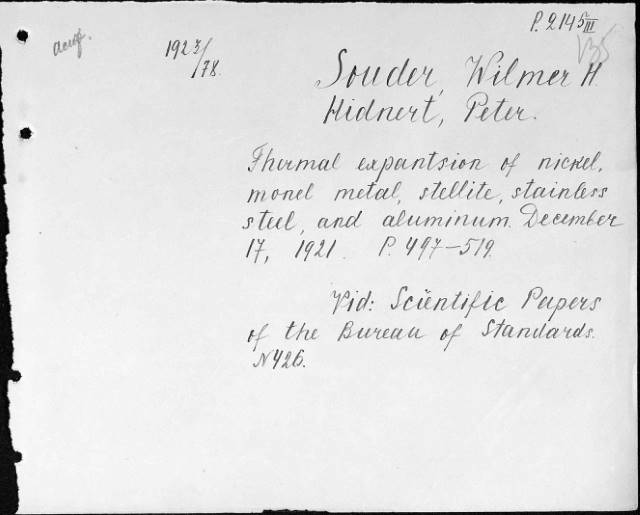 P. 2145 III
1923/78.
Souder, Wilmer H.
Hidnert, Peter.
Thermal expantsion of nickel,
monel metal, stellite, stainless
steel, and aluminum. December
17, 1921. P. 497-519.
Vid: Scientific Papers
of the Bureau of Standards.
N426.